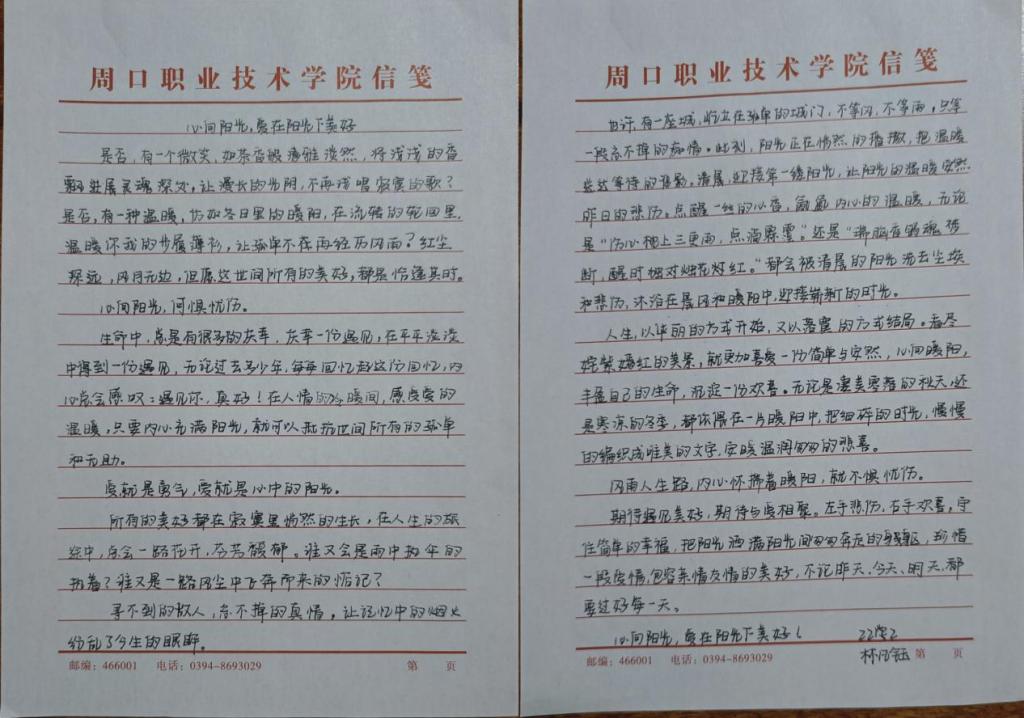 周口职业技术学院信笺
心向阳光,爱在阳光下美好
是否,有一个微笑,如茶香般清雅淡然,将浅浅的香
飘进展灵魂深处,让漫长的光阴,不再浅唱寂寞的歌?
是否,有一种温暖,仿如冬日里的暖阳,在流转的轮回里,
温暖你我的步履薄衫,让孤单不在再经历风雨?红尘
深远,风月无边,但愿这世间所有的美好,都是恰逢其时。
心向阳光,何惧忧伤。
生命中,总是有很多的庆幸,庆幸一份遇见,在平平淡淡
中得到一份遇见,无论过去多少年,每每回忆起这份回忆,内
心总会感叹:遇见你,真好!在人情的冷暖间,感受爱的
温暖,只要内心充满阳光,就可以抵抗世间所有的孤单
和无助。
爱就是勇气,爱就是心中的阳光。
所有的美好都在寂寞里悄然的生长,在人生的旅
途中,总会一路花开,芬芳馥郁。谁又会是雨中执伞的
执着?谁又是一路风尘中飞奔而来的惦记?
寻不到的故人,忘不掉的真情,让记忆中的烟火
纷乱了今生的眼眸。
邮编:466001 电话:0394-8693029 第 页
周口职业技术学院信笺
也许,有一座城,伫立在孤单的城门,不等风,不等雨,只等
一段忘不掉的痴情。此刻,阳光正在悄然的播撒,把温暖
送达等待的身影。清晨,迎接第一缕阳光,让阳光的温暖安然
昨日的悲伤。点醒一丝的心香,氤氲内心的温暖,无论
是“伤心枕上三更雨,点滴霖霪。”还是“沸脑夜的魂梦
断,醒时独对烛花红。”都会被清晨的阳光洗去尘埃
和悲伤,沐浴在晨风和暖阳中,迎接崭新的时光。
人生,以华丽的方式开始,又以落寞的方式结局。看尽
姹紫嫣红的美景,就更加喜爱一份简单与安然,心向暖阳,
丰盈自己的生命,沉淀一份欢喜。无论是凄美零落的秋天,还
是寒凉的冬季,都依偎在一片暖阳中,把细碎的时光,慢慢
的编织成唯美的文字,安暖温润匆匆的悲喜。
风雨人生路,内心怀揣着暖阳,就不惧忧伤。
期待遇见美好,期待与爱相聚。左手悲伤,右手欢喜,守
住简单的幸福,把阳光洒满阳光间匆匆奔波的身躯,珍惜
一段爱情,包容亲情友情的美好,不论昨天、今天、明天,都
要过好每一天。
心向阳光,爱在阳光下美好!
邮编:466001 电话:0394-8693029 第 页